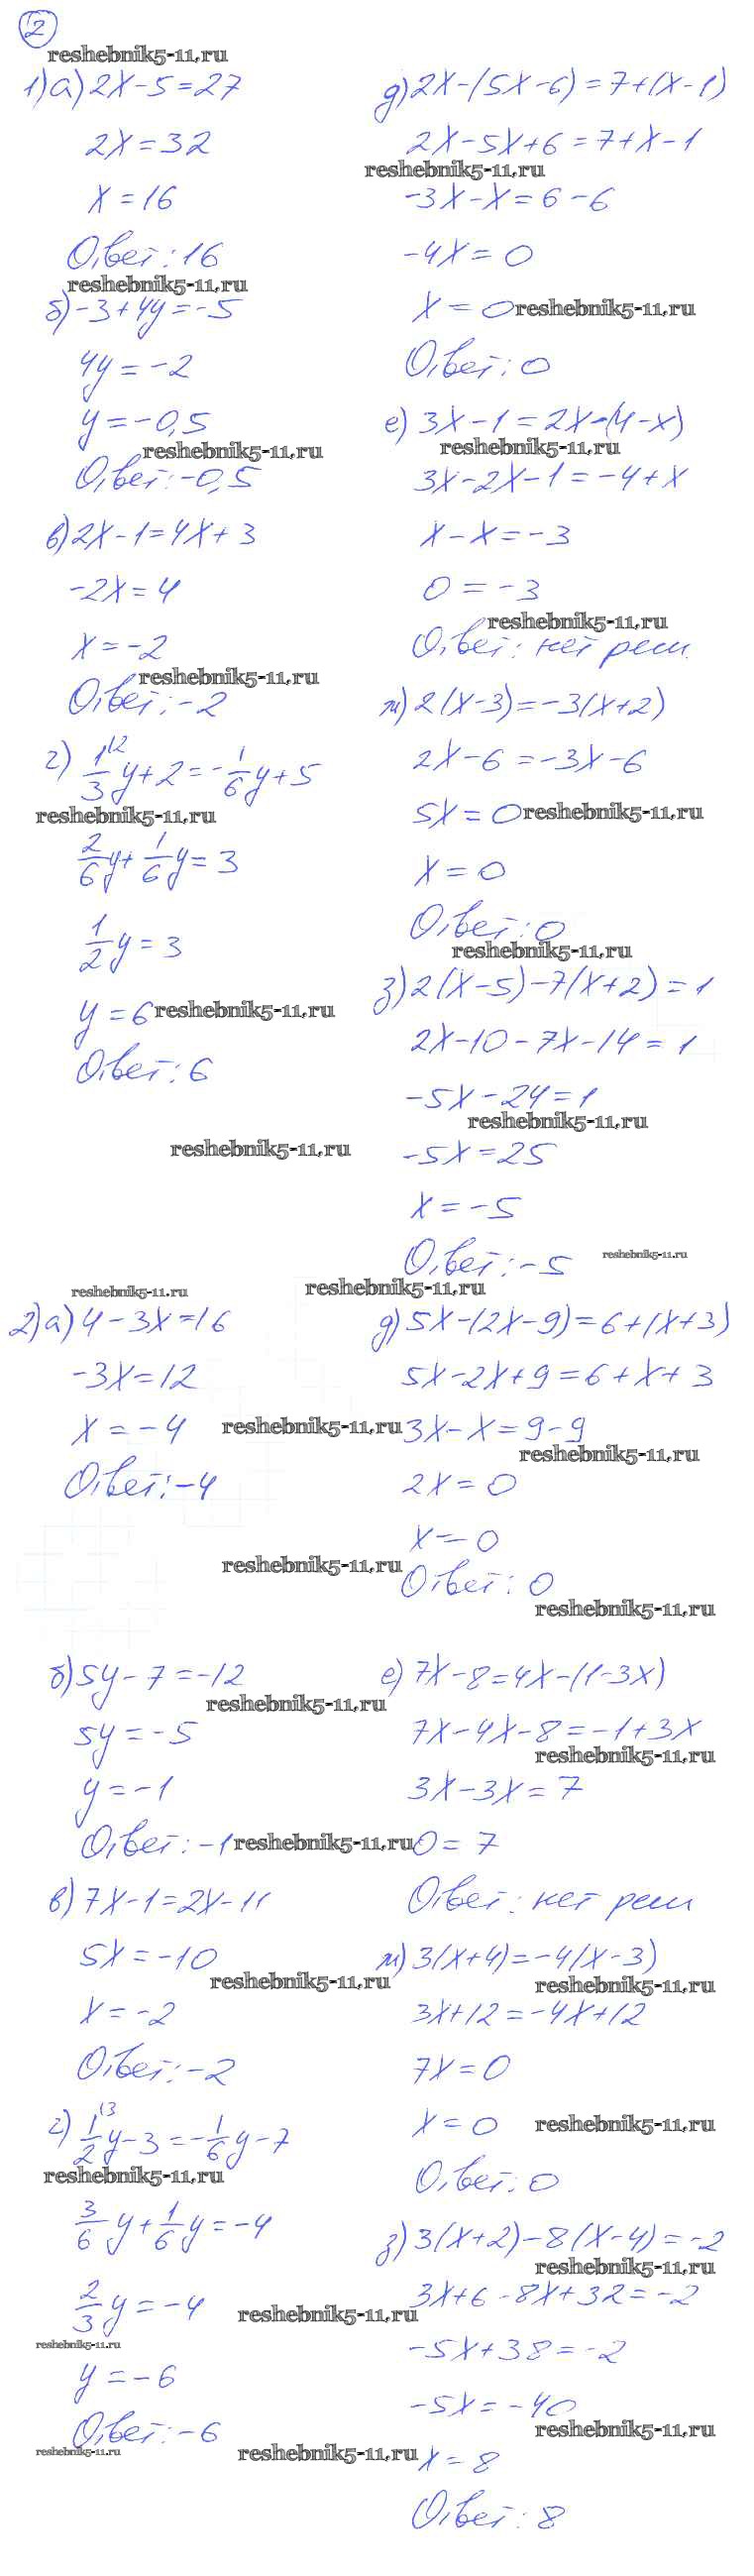 2
reshebnik5-11.ru
1) а) 2x-5=27
2x=32
x=16
Ответ: 16
reshebnik5-11.ru
б) -3+4y=-5
4y=-2
y=-0,5
reshebnik5-11.ru
Ответ: -0,5
в) 2x-1=4x+3
-2x=4
x=-2
reshebnik5-11.ru
Ответ: -2
г) 1/3 y+2=-1/6 y+5
reshebnik5-11.ru
2/6 y+1/6 y=3
1/2 y=3
y=6
reshebnik5-11.ru
Ответ: 6
reshebnik5-11.ru
д) 2x-(5x-6)=7+(x-1)
2x-5x+6=7+x-1
reshebnik5-11.ru
-3x-x=6-6
-4x=0
x=0
reshebnik5-11.ru
Ответ: 0
е) 3x-1=2x-(4-x)
reshebnik5-11.ru
3x-2x-1=-4+x
x-x=-3
0=-3
reshebnik5-11.ru
Ответ: нет реш.
ж) 2(x-3)=-3(x+2)
2x-6=-3x-6
5x=0
reshebnik5-11.ru
x=0
Ответ: 0
reshebnik5-11.ru
з) 2(x-5)-7(x+2)=1
2x-10-7x-14=1
-5x-24=1
reshebnik5-11.ru
-5x=25
x=-5
Ответ: -5
reshebnik5-11.ru
reshebnik5-11.ru
reshebnik5-11.ru
2) а) 4-3x=16
-3x=12
x=-4
reshebnik5-11.ru
Ответ: -4
reshebnik5-11.ru
д) 5x-(2x-9)=6+(x+3)
5x-2x+9=6+x+3
3x-x=9-9
reshebnik5-11.ru
2x=0
x=0
Ответ: 0
reshebnik5-11.ru
б) 5y-7=-12
reshebnik5-11.ru
5y=-5
y=-1
Ответ: -1
reshebnik5-11.ru
в) 7x-1=2x-11
5x=-10
reshebnik5-11.ru
x=-2
Ответ: -2
г) 1/2 y-3=-1/6 y-7
reshebnik5-11.ru
3/6 y+1/6 y=-4
2/3 y=-4
reshebnik5-11.ru
reshebnik5-11.ru
y=-6
Ответ: -6
reshebnik5-11.ru
reshebnik5-11.ru
е) 7x-8=4x-(1-3x)
7x-4x-8=-1+3x
reshebnik5-11.ru
3x-3x=7
0=7
Ответ: нет реш
ж) 3(x+4)=-4(x-3)
reshebnik5-11.ru
3x+12=-4x+12
7x=0
x=0
reshebnik5-11.ru
Ответ: 0
з) 3(x+2)-8(x-4)=-2
reshebnik5-11.ru
3x+6-8x+32=-2
-5x+38=-2
-5x=-40
reshebnik5-11.ru
x=8
Ответ: 8